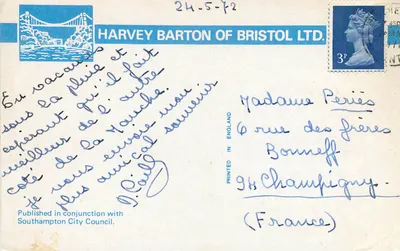 24-5-72
HARVEY BARTON OF BRISTOL LTD.
3P
En vacances
sous la pluie et
espérant qu'il fait
meilleur de l'autre
coté de la Manche.
je vous envoie mon
plus amical souvenir
PRINTED IN ENGLAND
Madame Periès
6 rue des frères
Bonneff
94 Champigny.
(France)
Published in conjunction with
Southampton City Council.